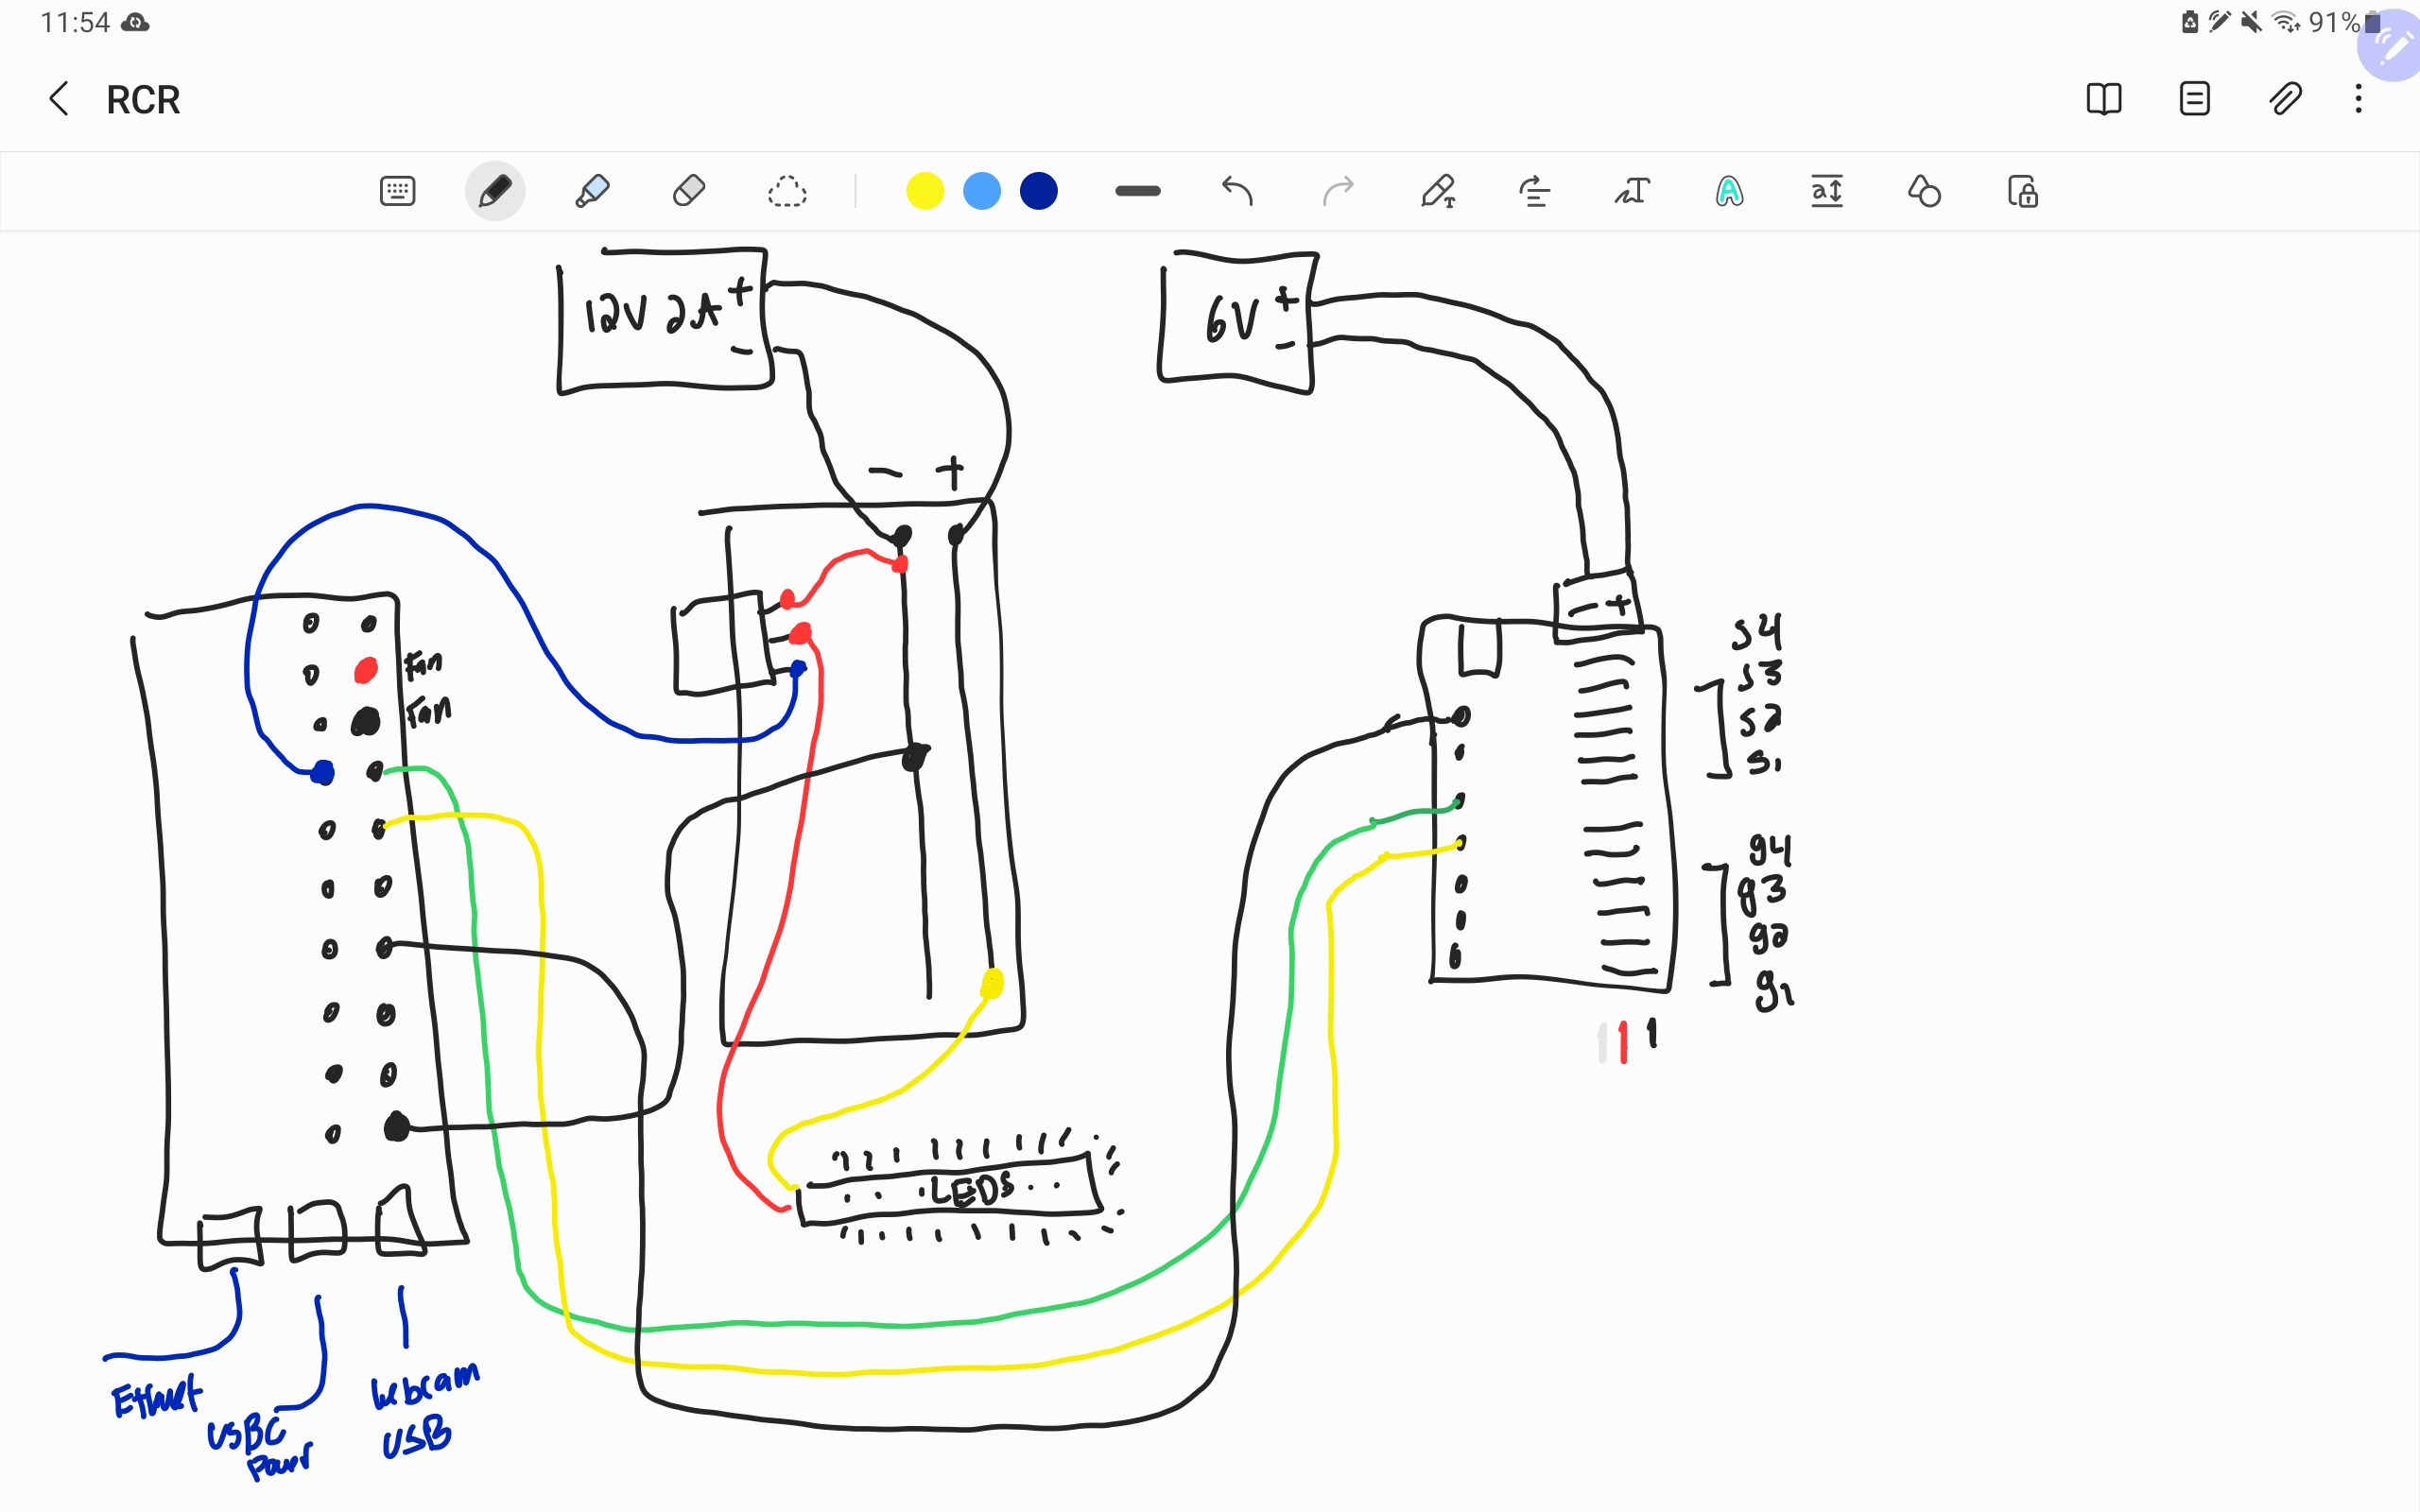 11:54
91%
RCR
12V 2A +
-
6V +
-
- +
- +
Fan
Fan
S4
S3
S2
S1
g4
g3
g2
g1
LEDS
Ethnet
USBC
Power
Webcam
USB